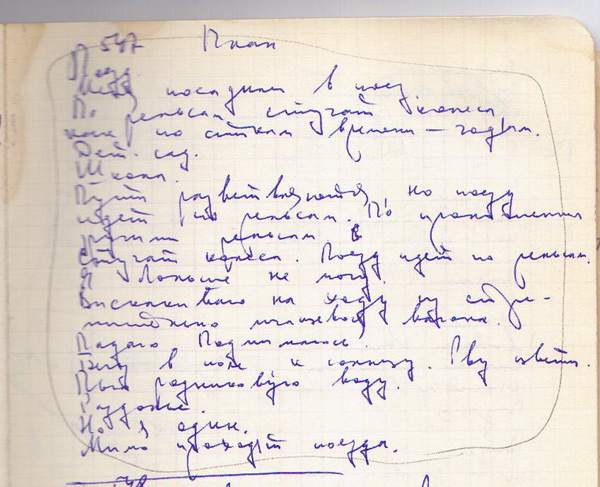 547 План
Поезд
Меня посадили в поезд
По рельсам стучат колеса,
как по стыкам времени — годам.
Дет. сад.
Школа.
Пути разветвляются, но поезд
идет по рельсам. По проложенным
другими рельсам
стучат колеса. Поезд идет по рельсам.
Я больше не могу.
Выскакиваю на ходу из стре-
мительно мчащегося вагона.
Падаю. Поднимаюсь.
Бегу в поле к солнцу. Рву цветы.
Пью родниковую воду.
Раздолье.
Но я один.
Мимо проходят поезда.
548